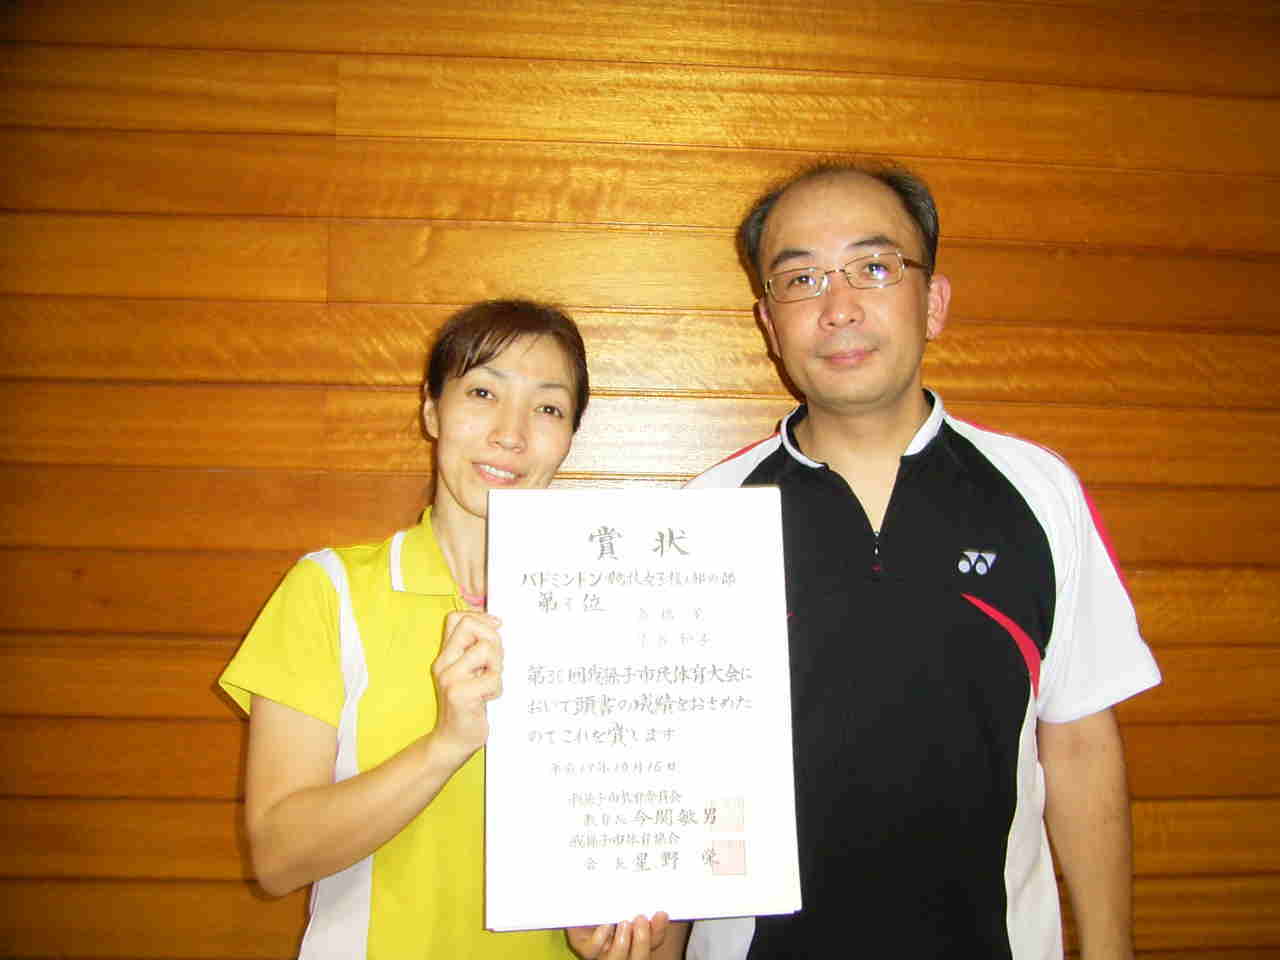 賞状
バドミントン
第 位
第30回我孫子市民体育大会に
おいて頭書の成績をおさめた
のでこれを賞します
平成17年10月16日
我孫子市教育委員会
教育長 今関敏男
我孫子市体育協会
会長 星野 栄